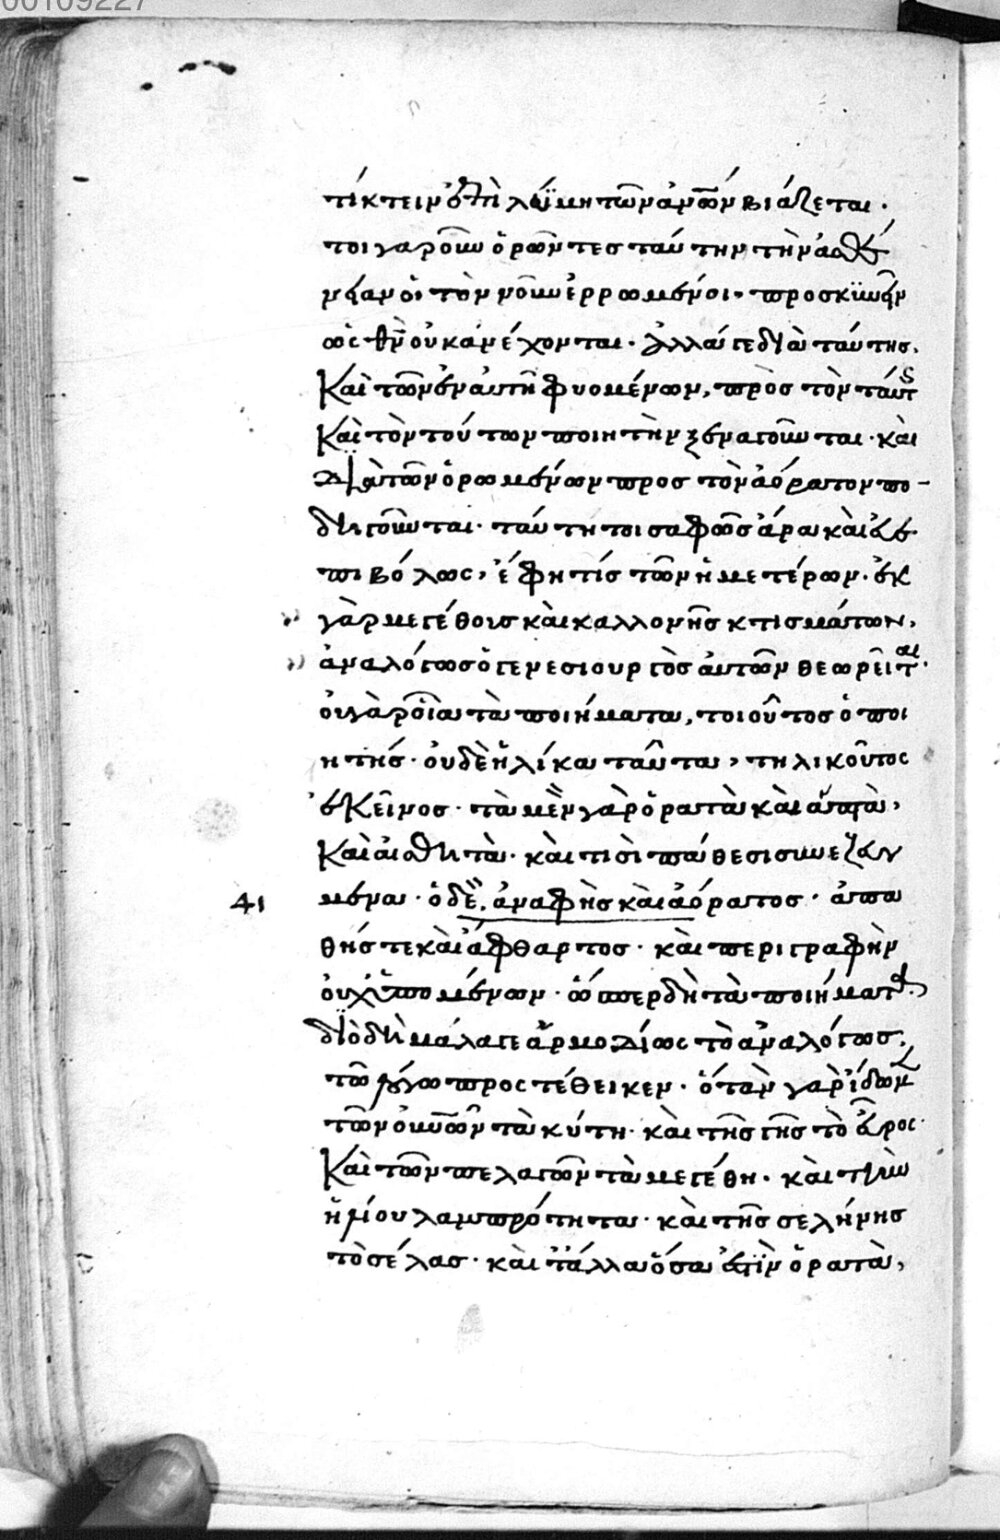 00109227
τίκτειν ἐπὶ λύμῃ τῶν ἀνῶν βιάζεται·
τοιγαροῦν ὁρῶντες ταύτην τὴν ἀσθέ
νειαν οἱ τὸν νοῦν ἐρρωμένοι, προσκυνεῖν
ὡς θν οὐκ ἀνέχονται· ἀλλά γε διὰ ταύτης,
Καὶ τῶν ἐν αὐτῇ φυομένων, πρὸς τὸν ταύτης
Καὶ τὸν τούτων ποιητὴν ξεναγοῦνται· καὶ
Διὰ τῶν ὁρωμένων πρὸς τὸν ἀόρατον πο-
δηγοῦνται· ταύτῃ τοι σαφῶς ἄρα καὶ ἐ
πιβόλως, ἔφη τίς τῶν ἡμετέρων· ἐκ
γὰρ μεγέθους καὶ καλλονῆς κτισμάτων,
ἀναλόγως ὁ γενεσιουργὸς αὐτῶν θεωρεῖται·
οὐ γὰρ οἷα τὰ ποιήματα, τοιοῦτος ὁ ποι
ητής· οὐδὲ ἡλίκα ταῦτα, τηλικοῦτος
ἐκεῖνος· τὰ μὲν γὰρ ὁρατὰ καὶ ἁπτὰ,
Καὶ αἰσθητὰ· καὶ τισὶ πάθεσι συνεζευγ
μένα· ὁ δὲ, ἀναφὴς καὶ ἀόρατος· ἀπα
41 θής τε καὶ ἄφθαρτος· καὶ περιγραφὴν
οὐχ ὑπομένων· ὥσπερ δὴ τὰ ποιήματα·
διὸ δὴ μάλα γε ἁρμοδίως τὸ ἀναλόγως,
τῷ λόγῳ προστέθεικεν· ὅταν γὰρ ἴδωμεν
τῶν οὐνῶν τὰ κύτη· καὶ τῆς γῆς τὸ εὖρος·
Καὶ τῶν πελαγῶν τὰ μεγέθη· καὶ τὴν
ἡλίου λαμπρότητα· καὶ τῆς σελήνης
τὸ σέλας· καὶ τἄλλα ὅσα ἐστὶν ὁρατὰ,